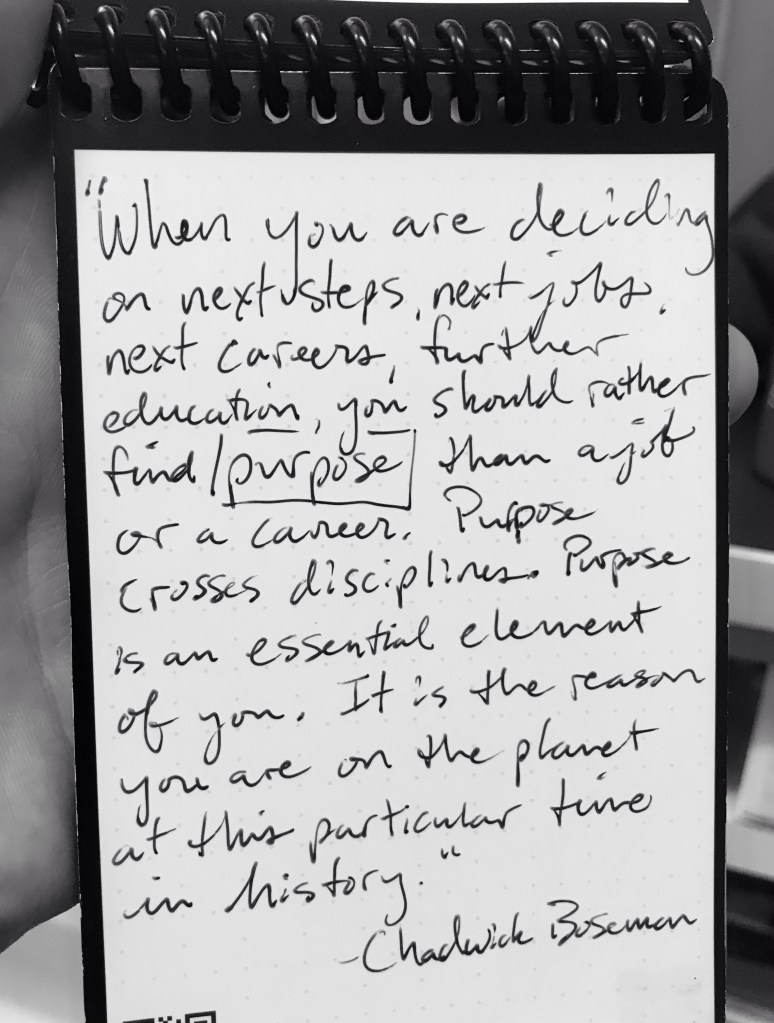 "When you are deciding
on next steps, next jobs,
next careers, further
education, you should rather
find purpose than a job
or a career. Purpose
crosses disciplines. Purpose
is an essential element
of you. It is the reason
you are on the planet
at this particular time
in history."
-Chadwick Boseman